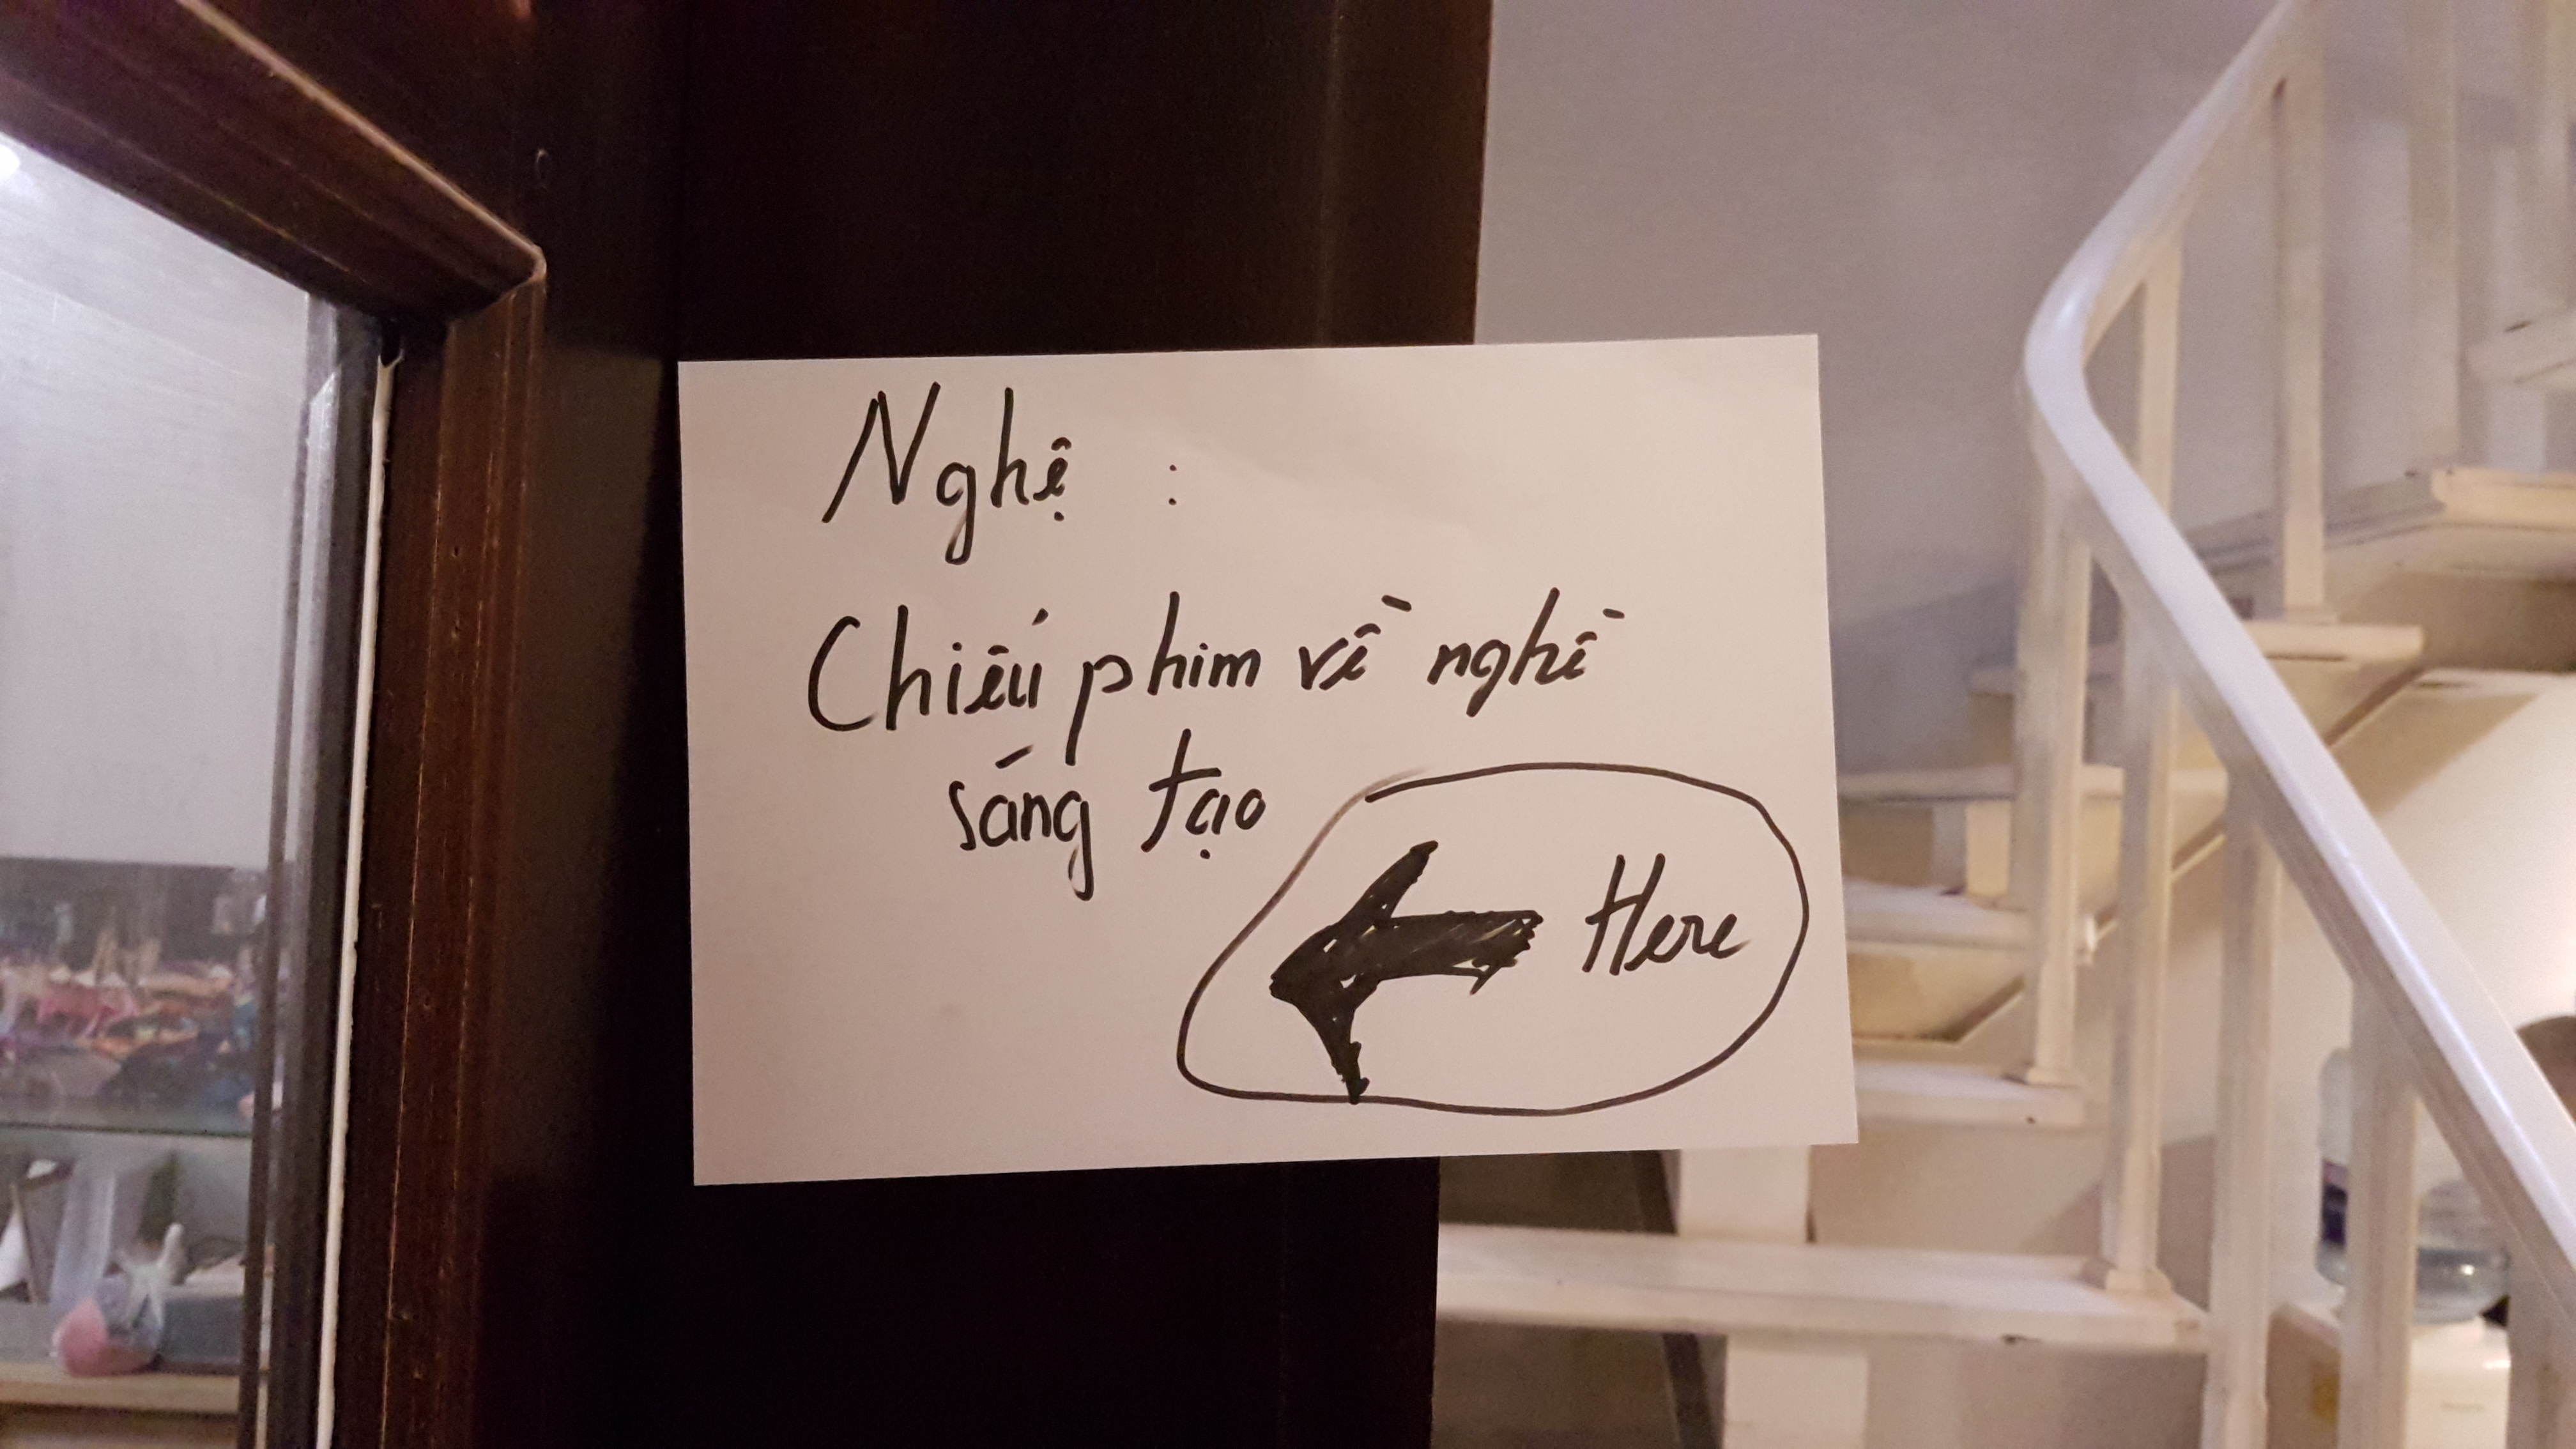 Nghệ :
Chiếu phim về nghề
sáng tạo
Here